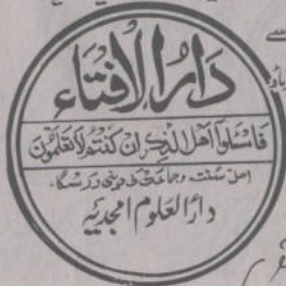 دارُالافتاء
فَاسْئَلُوْٓا اَهْلَ الذِّكْرِ اِنْ كُنْتُمْ لَا تَعْلَمُوْنَ
اہل سنت وجماعت کی دینی درسگاہ
دارُالعلوم امجدیہ